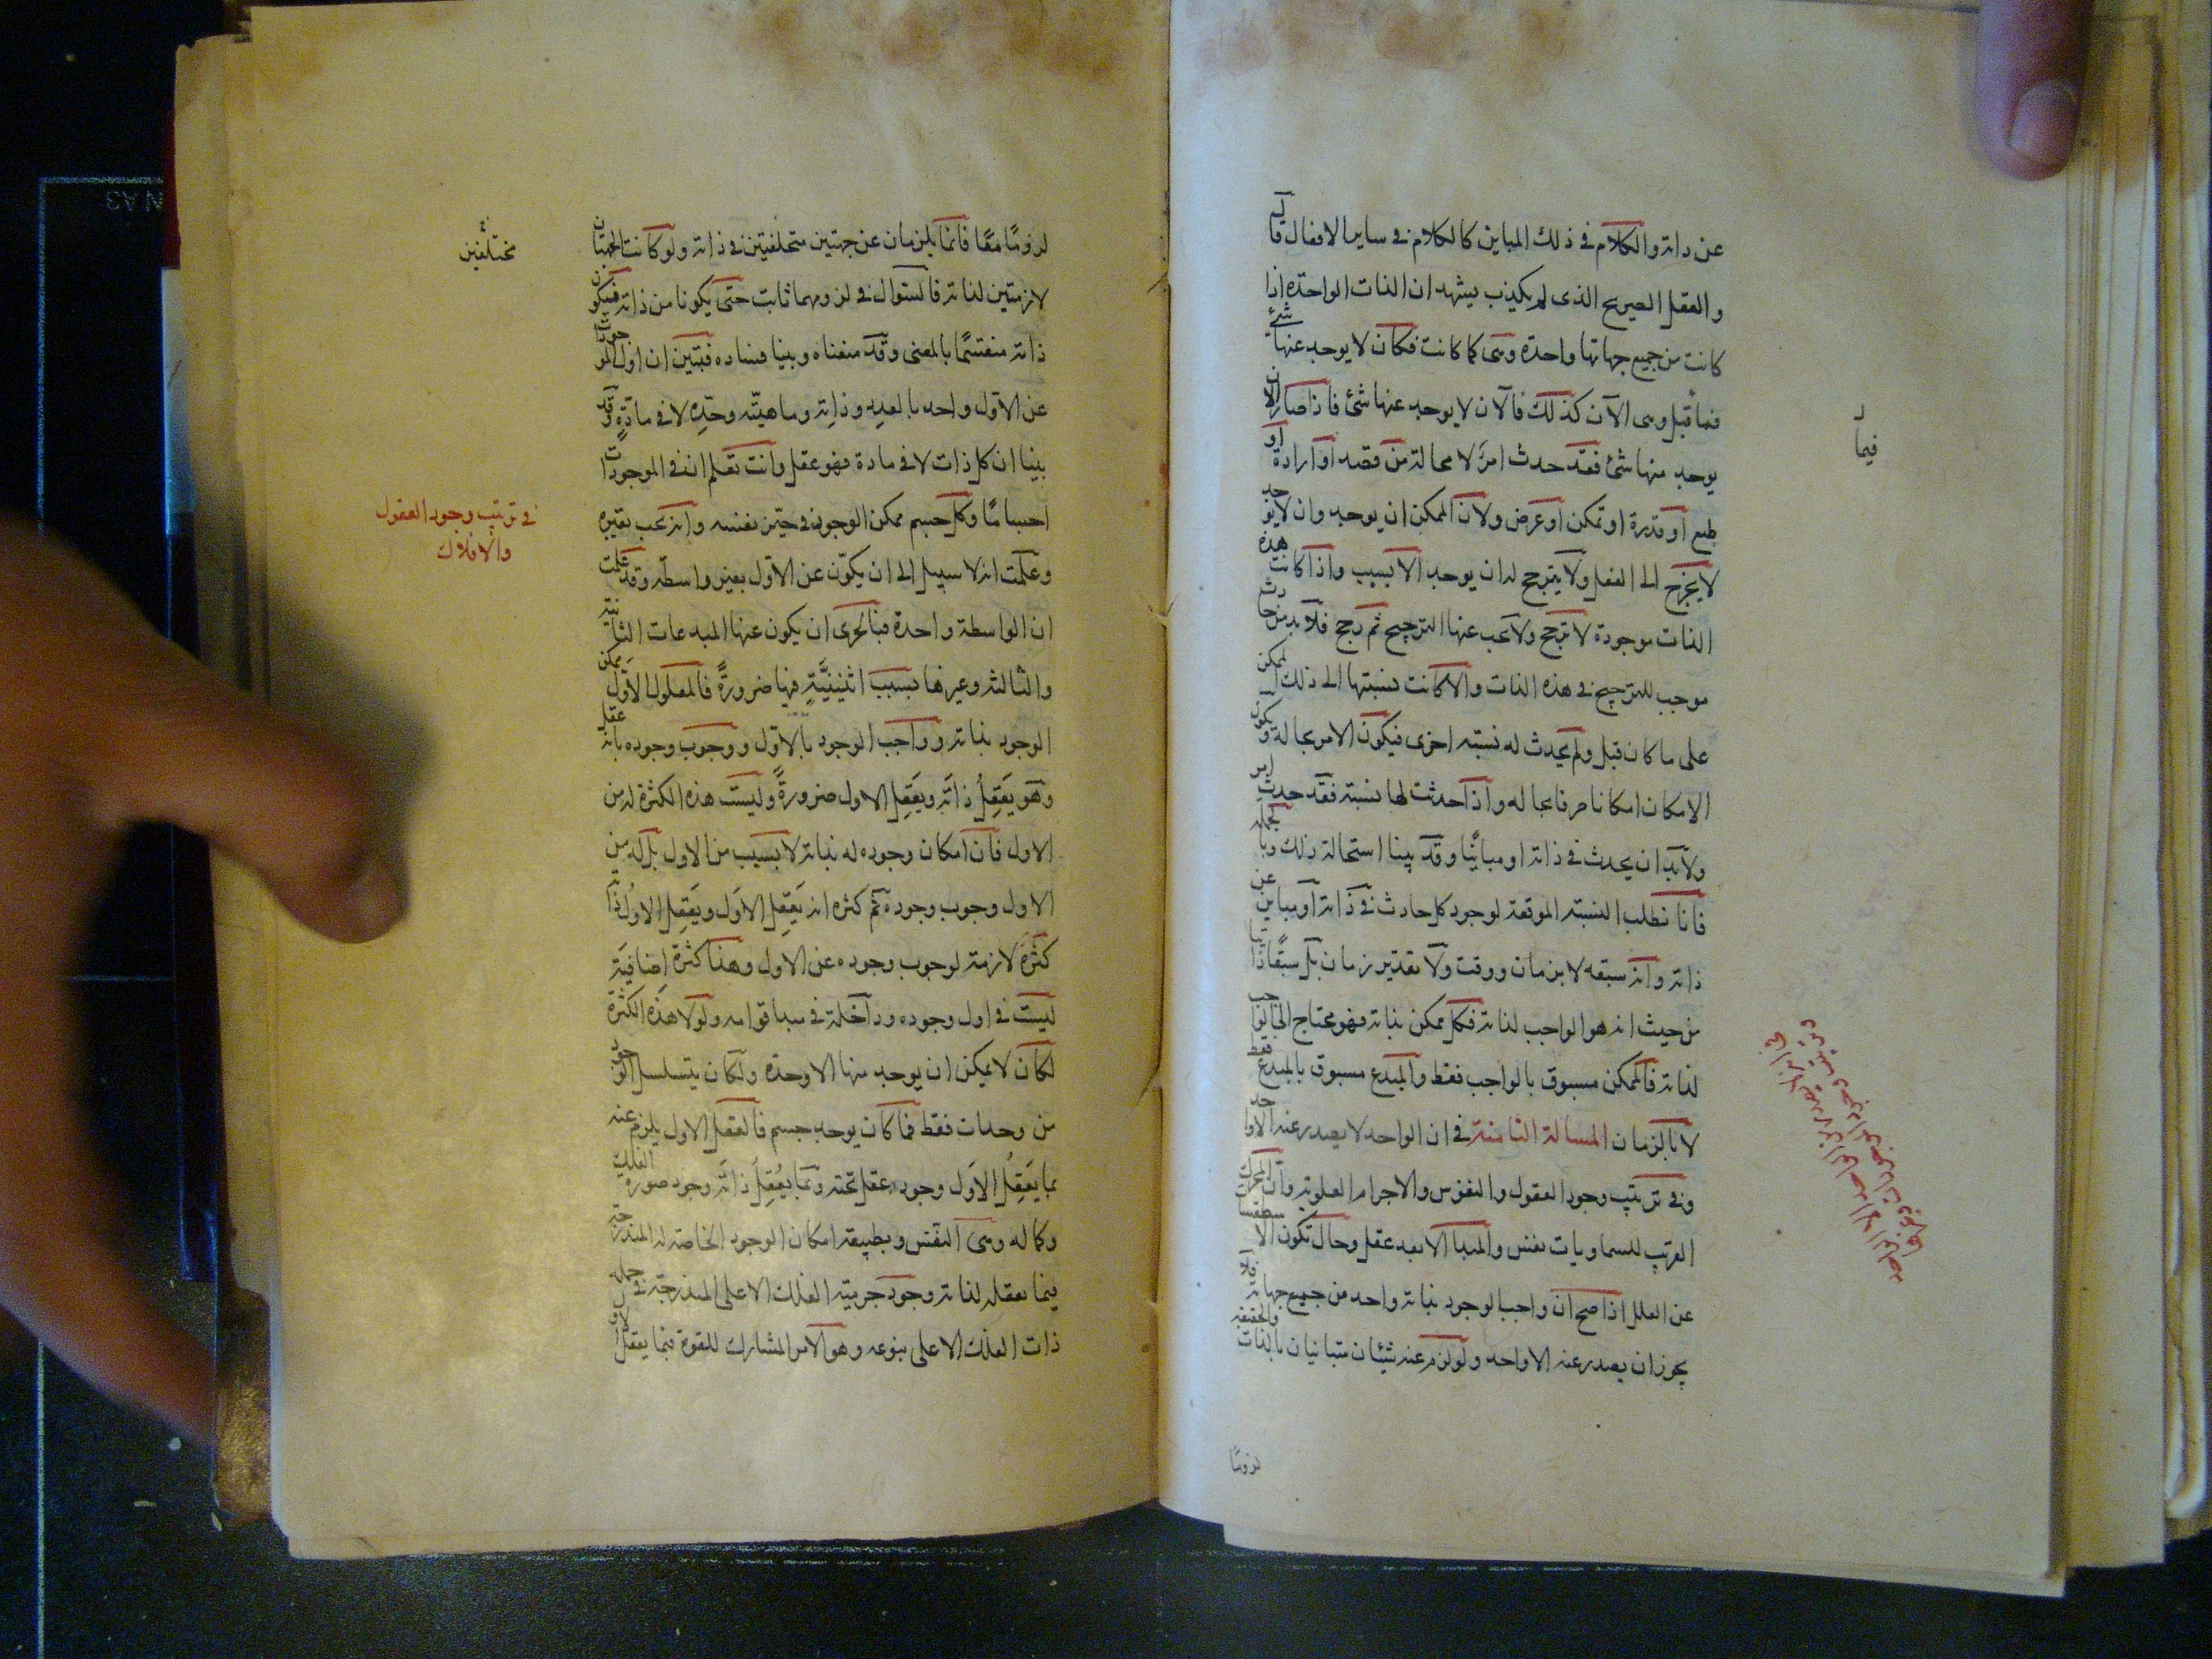 عن ذاته والكلام في ذلك المباين كالكلام في ساير الافعال قالم
والعقل الصريح الذى لم يكذب يشهد ان الذات الواحدة اذا
كانت من جميع جهاتها واحدة وهى كما كانت فكان لا يوجد عنها شئ
فما قبل وهى الآن كذلك فالآن لا يوجد عنها شئ فاذا صار الان
فيما
يوجد منها شئ فقد حدث امر لا محالة من قصد او ارادة او
طبع او قدرة او تمكن او عرض ولان الممكن ان يوجد وان لا يوجد
لا يخرج الى الفعل ولا يترجح له ان يوجد الا بسبب واذا كانت هذه
الذات موجودة لا ترجح ولا يجب عنها الترجيح ثم رجح فلا بد من حادث
موجب للترجيح في هذه الذات والا كانت نسبتها الى ذلك الممكن
على ما كان قبل ولم يحدث له نسبة اخرى فيكون الامر بحاله ويكون
الامكان امكانا صرفا بحاله واذا حدثت لها نسبة فقد حدث امر
ولا بد ان يحدث في ذاته او مباينا وقد بينا استحالة ذلك وبالجملة
فانا نطلب النسبة الموقعة لوجود كل حادث في ذاته او مباين عن
ذاته وانه سبقه لا بزمان ووقت ولا تقدير زمان بل سبقا ذاتيا
من حيث انه هو الواجب لذاته فكل ممكن بذاته فهو محتاج الى الواجب
لذاته فالممكن مسبوق بالواجب فقط والمبدع مسبوق بالمبدع فقط
لا بالزمان المسالة الثامنة في ان الواحد لا يصدر عنه الا واحد
وفى ترتيب وجود العقول والنفوس والاجرام العلوية وان المحرك
القريب للسماويات نفس والمبدا الابعد عقل وحال تكون الاسطقسات
عن العلل اذا صح ان واجب الوجود بذاته واحد من جميع جهاته فلا
يجوز ان يصدر عنه الا واحد ولو لزم عنه شيئان متباينان بالذات والحقيقة
لزوما
لزوما معا فانما يلزمان عن جهتين متحلفتين في ذاته ولو كانت الجهتان
مختلفين
لازمتين لذاته فالسؤال في لزومهما ثابت حتى يكونا من ذاته فيكون
ذاته منقسما بالمعنى وقد منعناه وبينا فساده فتبين ان اول الموجودات
عن الاول واحد بالعدد وذاته وماهيته وحده لا في مادة وقد
بينا ان كل ذات لا في مادة فهو عقل وانت تعلم ان في الموجودات
اجساما وكل جسم ممكن الوجود في حيز نفسه وانه يجب بغيره
في ترتيب وجود العقول
والافلاك
وعلمت انه لا سبيل الى ان يكون عن الاول بغير واسطة وقد علمت
ان الواسطة واحدة فبالحرى ان يكون عنها المبدعات الثانية
والثالثة وغيرها بسبب اثنينية فيها ضرورة فالمعلول الاول ممكن
الوجود بذاته وواجب الوجود بالاول ووجوب وجوده بانه عقل
وهو يعقل ذاته ويعقل الاول ضرورة وليست هذه الكثرة له من
الاول فان امكان وجوده له بذاته لا بسبب من الاول بل له من
الاول وجوب وجوده ثم كثرة انه يعقل الاول ويعقل الاول ذا
كثرة لازمة لوجوب وجوده عن الاول وهذا كثرة اضافية
ليست في اول وجوده وداخلة في مبدا قوامه ولولا هذه الكثرة
لكان لا يمكن ان يوجد منها الا وحدة ولكان يتسلسل الوجود
من وحدات فقط فما كان يوجد جسم فالعقل الاول يلزم عنه
بما يعقل الاول وجود عقل تحته وبما يعقل ذاته وجود صورة الفلك
وكماله وهى النفس وبطبيعة امكان الوجود الخاصة له المندرجة
فيما تعقله لذاته وجود جرمية الفلك الاعلى المندرجة في جملة
ذات الفلك الاعلى بنوعه وهو الامر المشارك للقوة فبما يعقل الاول